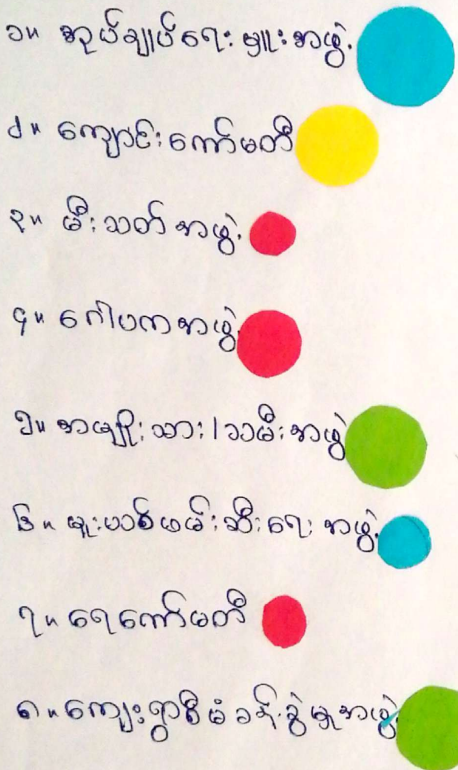 ၁။ အုပ်ချုပ်ရေးမှူးအဖွဲ့
၂။ ကျောင်းကော်မတီ
၃။ မီးသတ်အဖွဲ့
၄။ ဂေါပကအဖွဲ့
၅။ အမျိုးသား/သမီးအဖွဲ့
၆။ မူးယစ်ဖမ်းဆီးရေးအဖွဲ့
၇။ ရေကော်မတီ
၈။ ကျေးရွာစီမံခန့်ခွဲမှုအဖွဲ့